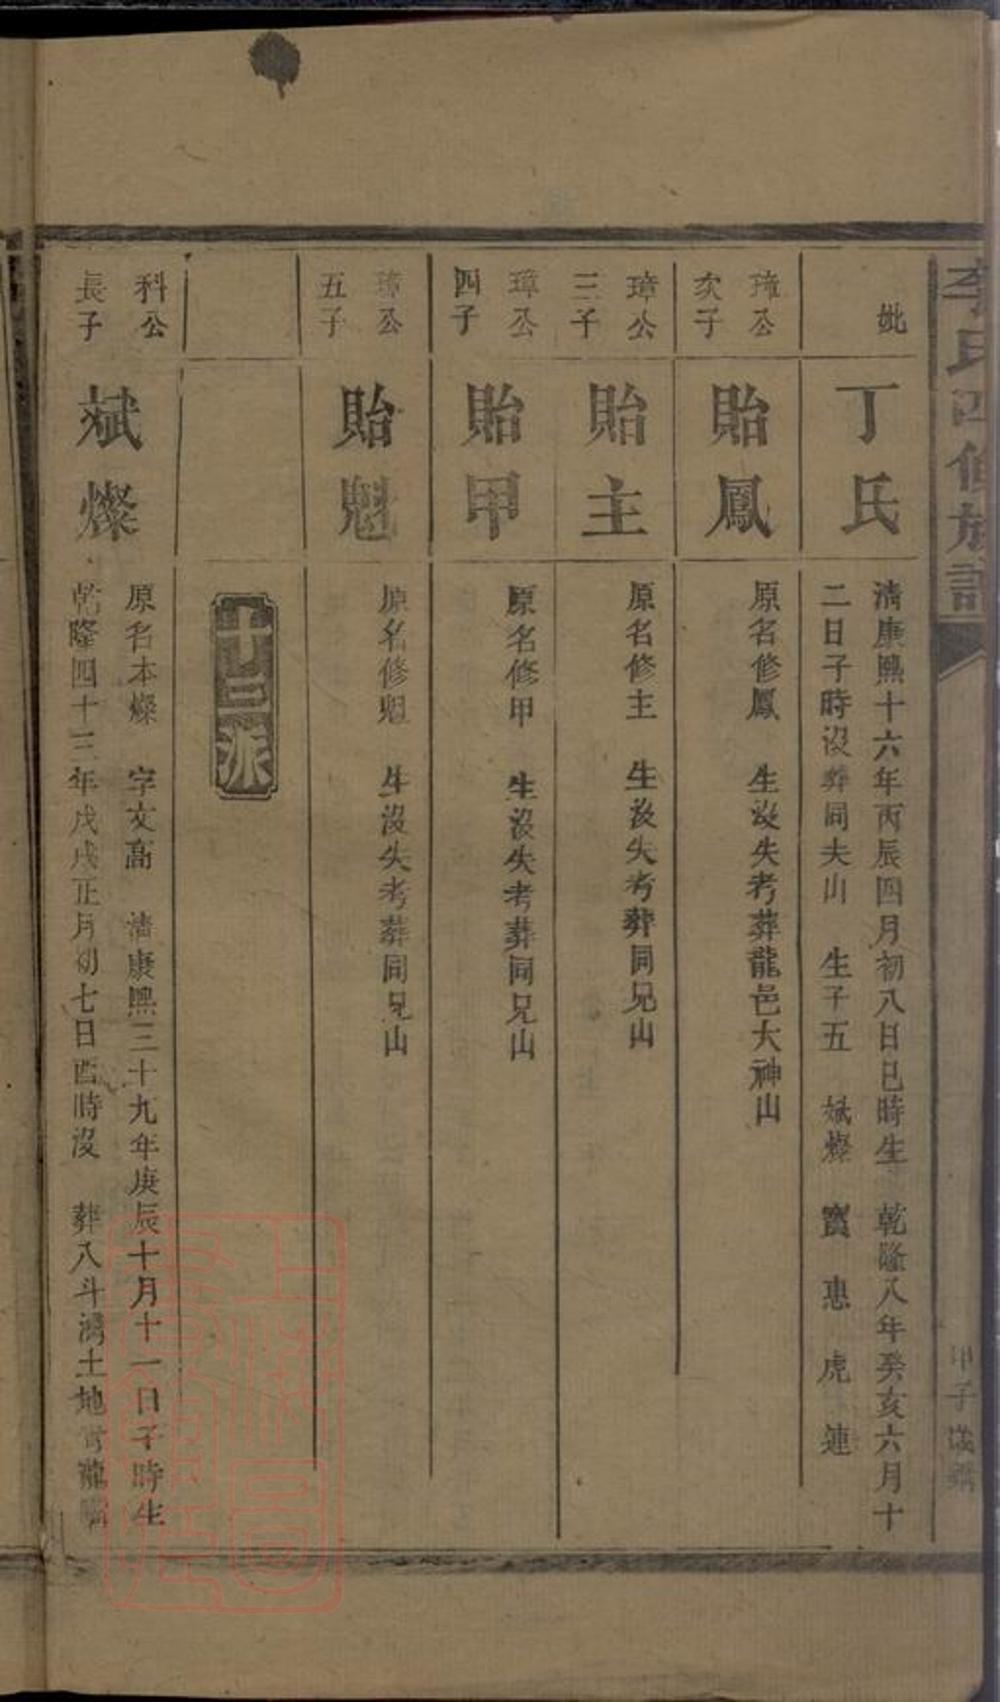 李氏四修族譜
妣
丁氏
清康熙十六年丙辰四月初八日巳時生 乾隆八年癸亥六月十
二日子時沒葬同夫山 生子五 斌燦 寶 惠 虎 連
璋公
次子
貽鳳
原名修鳳 生沒失考葬龍邑大神山
璋公
三子
貽主
原名修主 生沒失考葬同兄山
璋公
四子
貽甲
原名修甲 生沒失考葬同兄山
璋公
五子
貽魁
原名修魁 生沒失考葬同兄山
十三派
科公
長子
斌燦
原名本燦 字文高 清康熙三十九年庚辰十月十一日子時生
乾隆四十三年戊戌正月初七日酉時沒 葬八斗灣土地